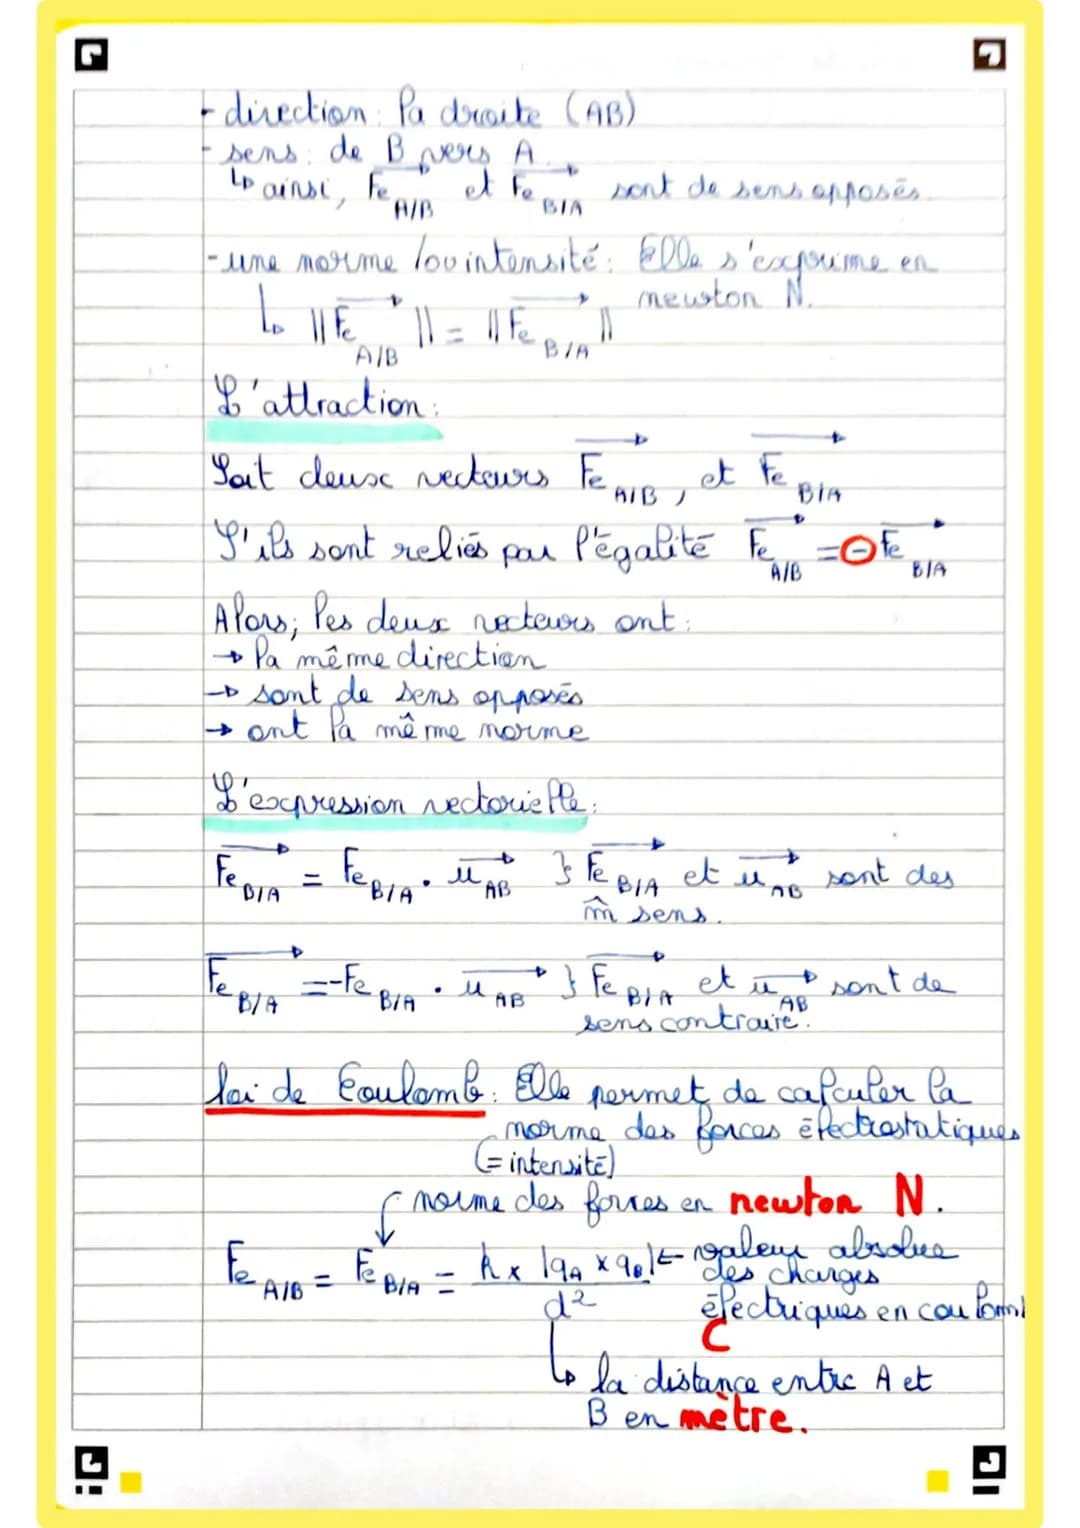 - direction : la droite (AB)
- sens : de B vers A.
↳ ainsi, Fe A/B et Fe B/A sont de sens opposés.
- une norme / ou intensité : Elle s'exprime en
newton N.
↳ ||Fe A/B || = ||Fe B/A ||
L'attraction :
Soit deux vecteurs Fe A/B, et Fe B/A
S'ils sont reliés par l'égalité Fe A/B = - Fe B/A
Alors; les deux vecteurs ont :
→ la même direction
→ sont de sens opposés
→ ont la même norme
L'expression vectorielle :
Fe B/A = Fe B/A . u AB } Fe B/A et u AB sont des
m̂ sens.
Fe B/A = -Fe B/A . u AB } Fe B/A et u AB sont de
sens contraire.
loi de Coulomb : Elle permet de calculer la
norme des forces électrostatiques
(= intensité)
norme des forces en newton N.
Fe A/B = Fe B/A = k x |qA x qB| ← valeur absolue
des charges
d² électriques en coulomb
C
↳ la distance entre A et
B en mètre.